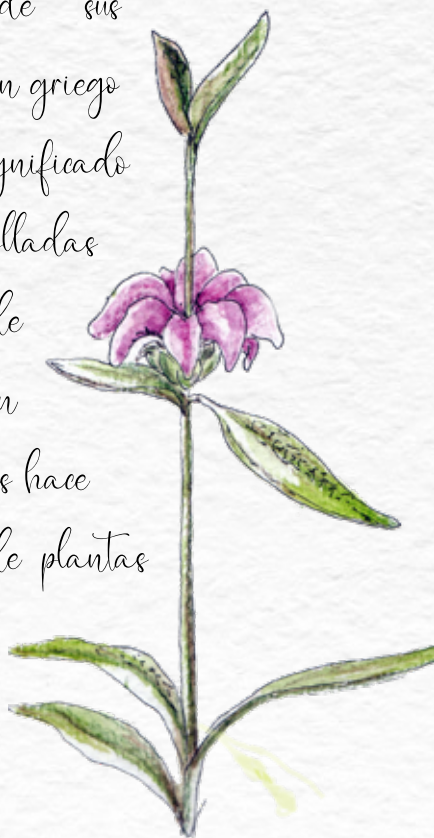 de sus
n griego
gnificado
lladas
le
n
s hace
le plantas